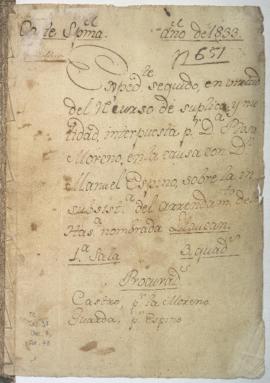 Corte Sprma. año de 1833.
N 651
Expedte. seguido, en virtud
del recurso de suplica y nu
lidad, interpuesta pr. Da.
Moreno, en la causa con Dn.
Manuel Espino, sobre la in
subsista. del arrendamto. de la
Hasa. nombrada
1.a Sala 3. quads.
Procurads.
Castro, pr. la Moreno
Guarda, pr. Espino